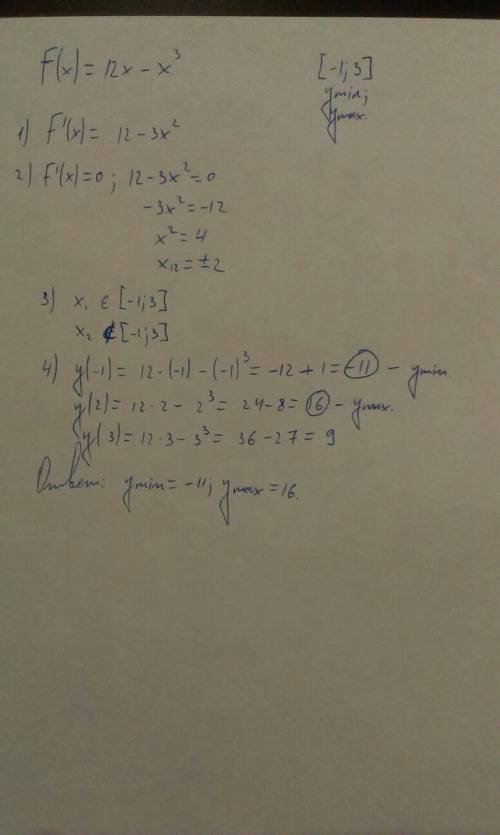 F(x) = 12x - x³
[-1; 3]
ymin;
ymax.
1) F'(x) = 12 - 3x²
2) F'(x)=0; 12 - 3x² = 0
-3x² = -12
x² = 4
x₁₂ = ±2
3) x₁ ∈ [-1; 3]
x₂ ∉ [-1; 3]
4) y(-1) = 12·(-1) - (-1)³ = -12 + 1 = -11 - ymin.
y(2) = 12·2 - 2³ = 24 - 8 = 16 - ymax.
y(3) = 12·3 - 3³ = 36 - 27 = 9
Ответ: ymin = -11; ymax = 16.